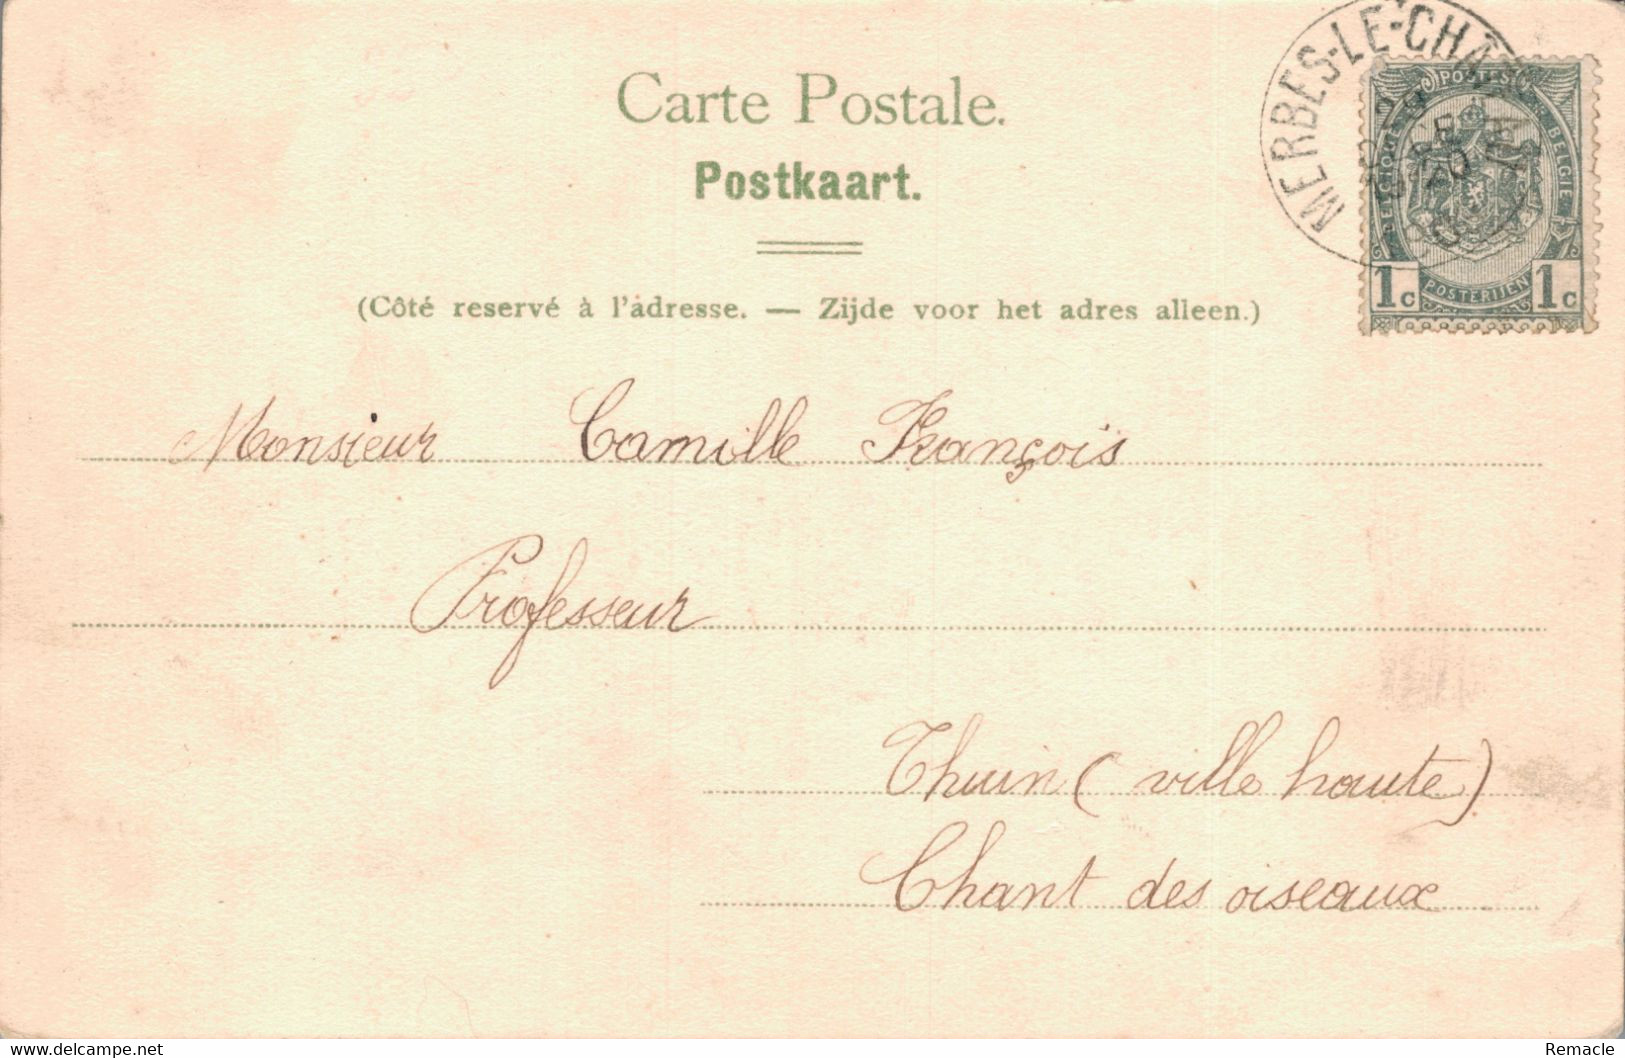 MERBES-LE-CHÂ
Carte Postale.
Postkaart.
(Côté reservé à l'adresse. — Zijde voor het adres alleen.)
POSTES
BELGIQUE
BELGIE
1c POSTERIJEN 1c
Monsieur Camille François
Professeur
Thuin (ville haute)
Chant des oiseaux
www.delcampe.net
Remacle